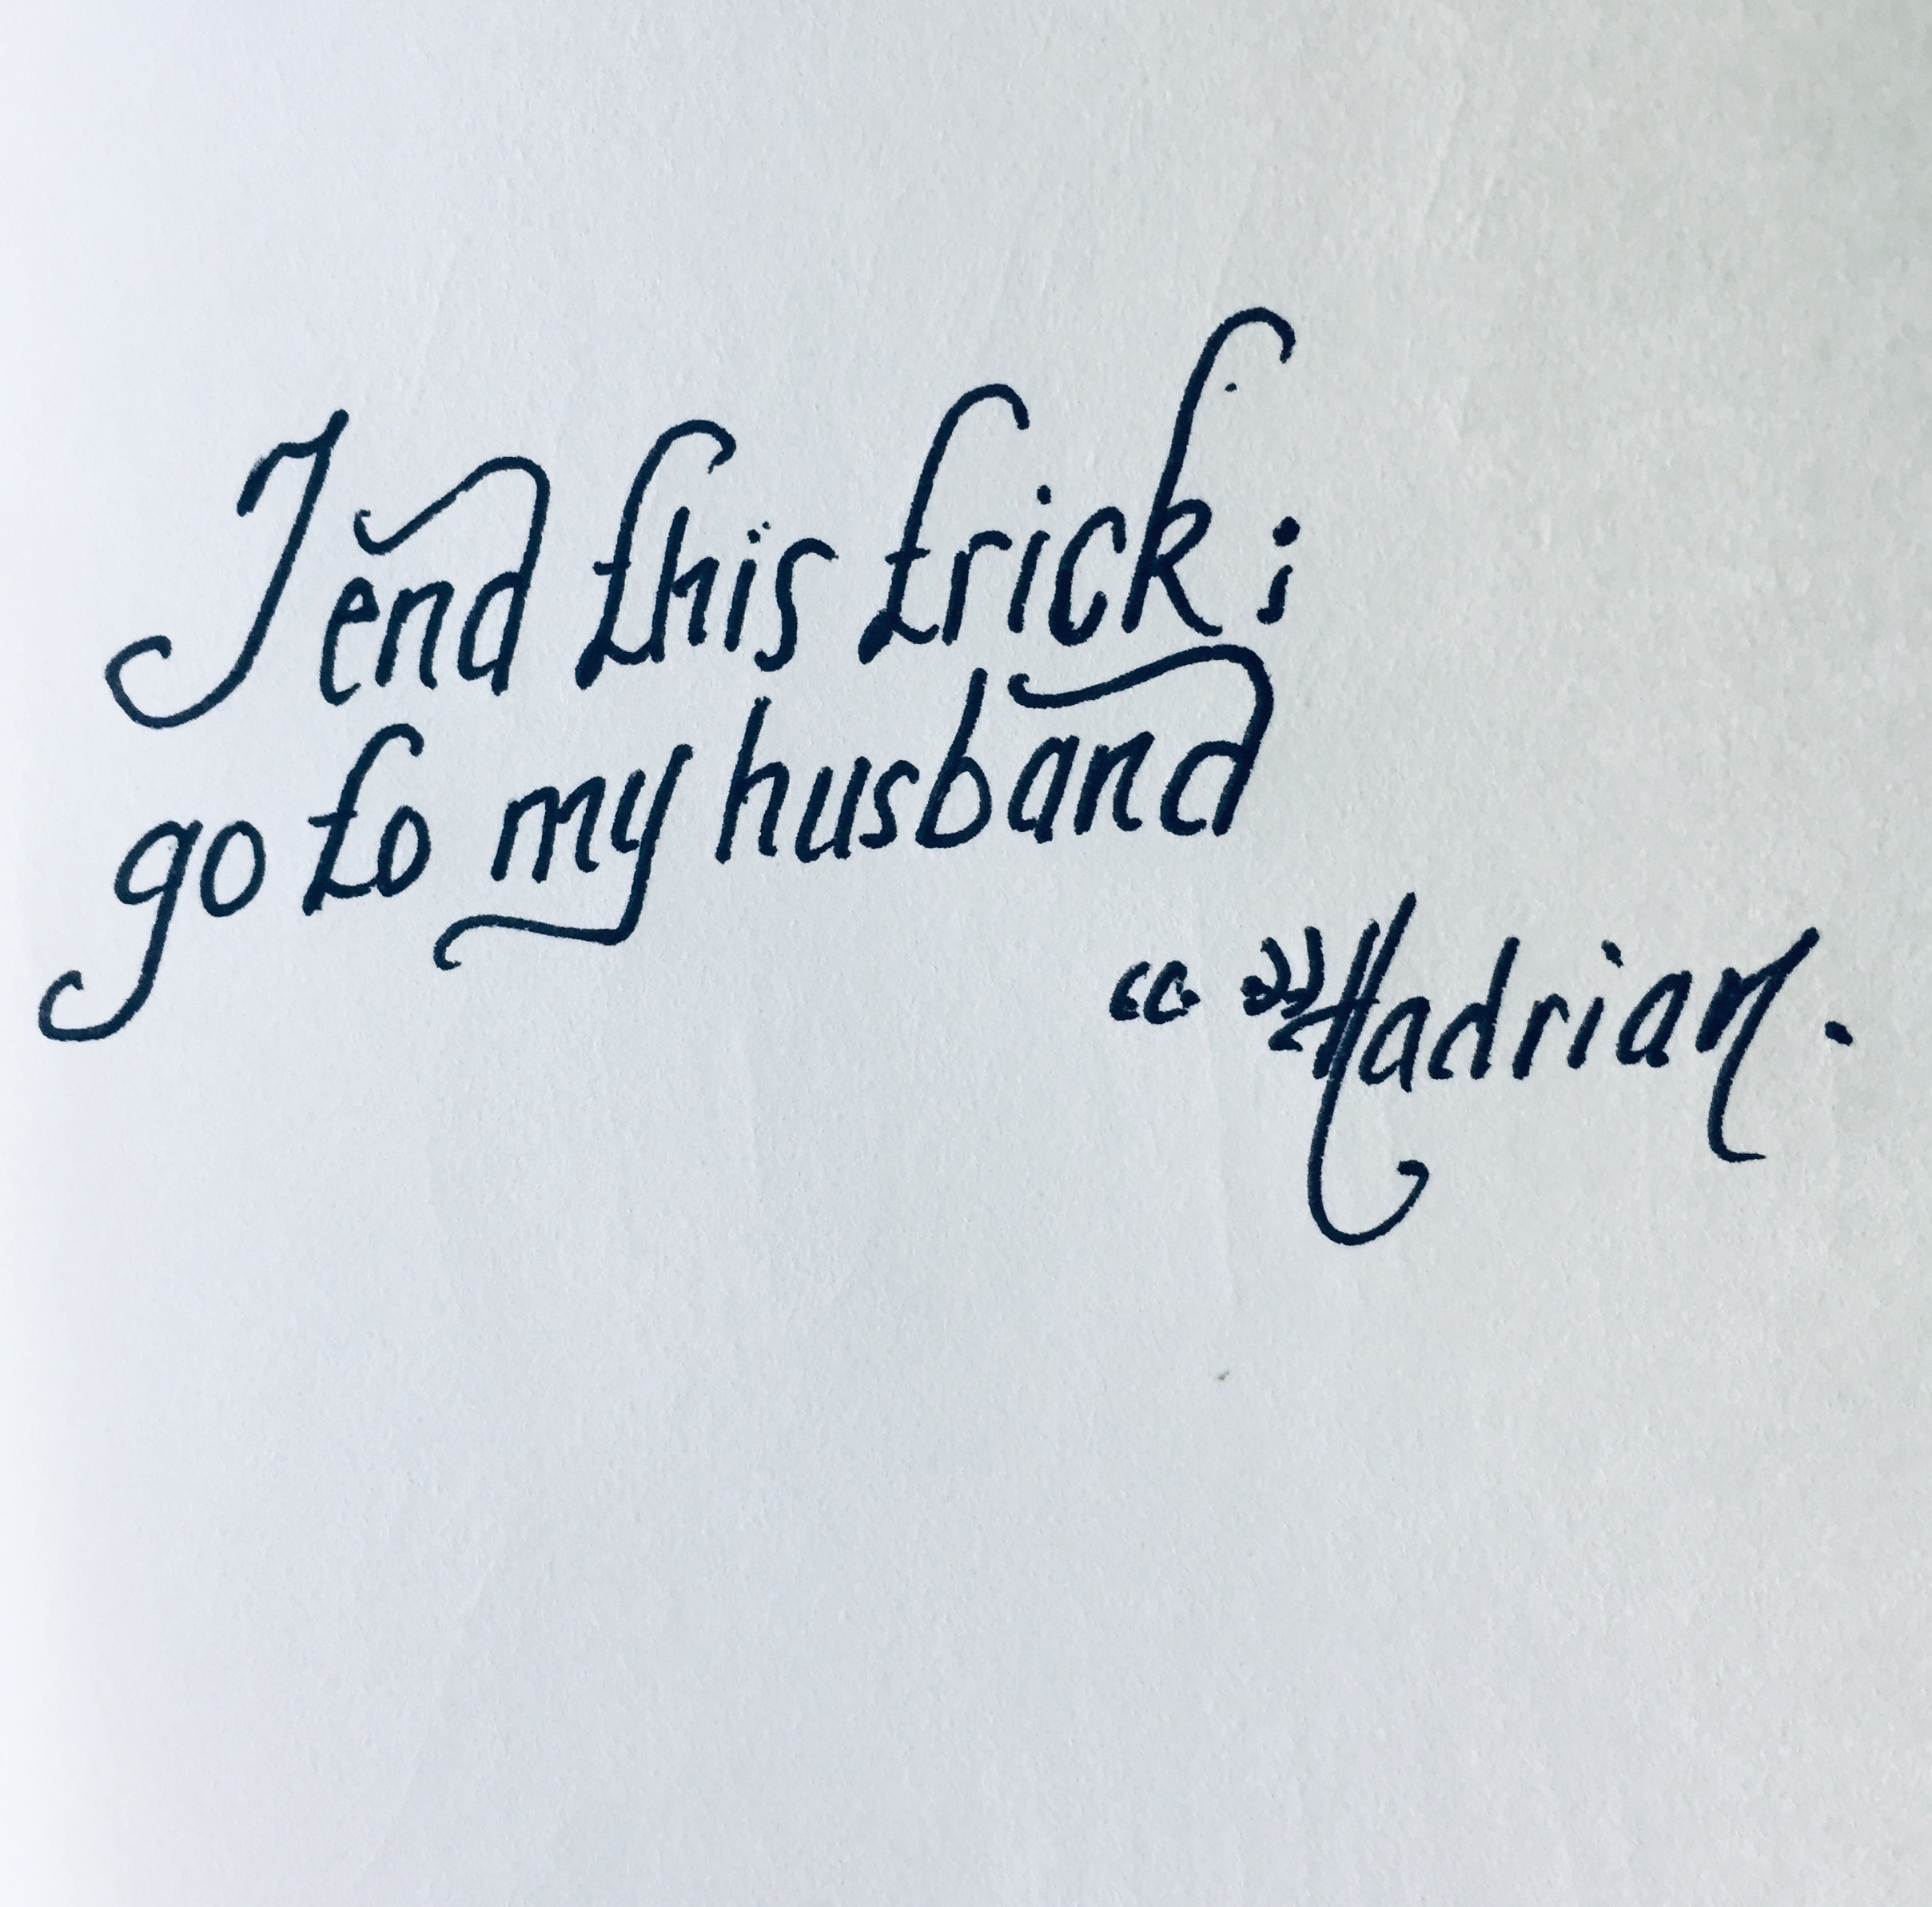 I end this trick;
go to my husband
“ ”Hadrian.